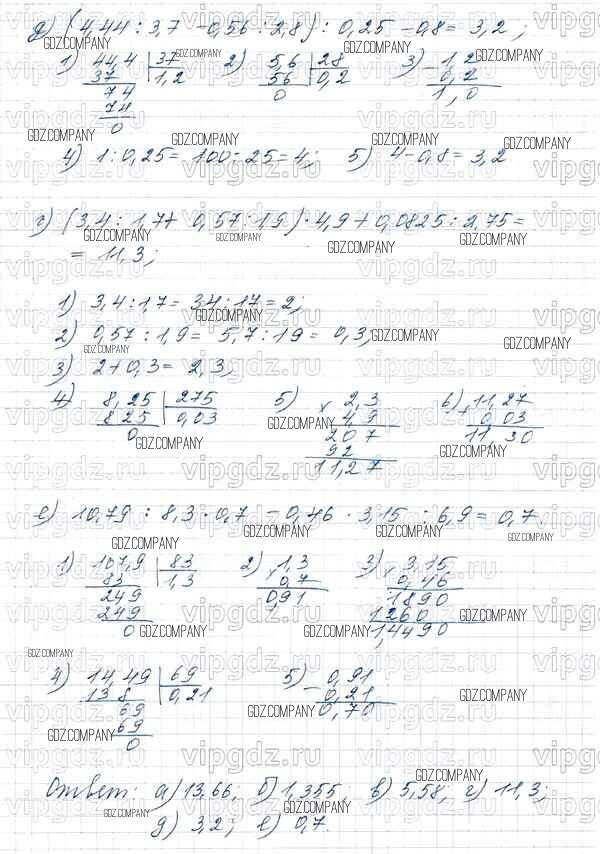 д) (4,44 : 3,7 - 0,56 : 2,8) : 0,25 - 0,8 = 3,2;
1) 44,4 | 37 2) 5,6 | 28 3) - 1,2
37 | 1,2 56 | 0,2 0,2
74 0 1,0
74
0
4) 1 : 0,25 = 100 : 25 = 4; 5) 4 - 0,8 = 3,2
г) (3,4 : 1,7 + 0,57 : 1,9) · 4,9 + 0,0825 : 2,75 =
= 11,3;
1) 3,4 : 1,7 = 34 : 17 = 2;
2) 0,57 : 1,9 = 5,7 : 19 = 0,3;
3) 2 + 0,3 = 2,3;
4) 8,25 | 275 5) × 2,3 6) + 11,27
825 | 0,03 4,9 0,03
0 207 11,30
92
11,27
е) 10,79 : 8,3 · 0,7 - 0,46 · 3,15 : 6,9 = 0,7.
1) 107,9 | 83 2) × 1,3 3) × 3,15
83 | 1,3 0,7 0,46
249 0,91 1890
249 1260
0 1,4490
4) 14,49 | 69 5) - 0,91
138 | 0,21 0,21
69 0,70
69
0
Ответ: а) 13,66; б) 1,355, в) 5,58; г) 11,3;
д) 3,2; е) 0,7.
GDZ.COMPANY
vipgdz.ru